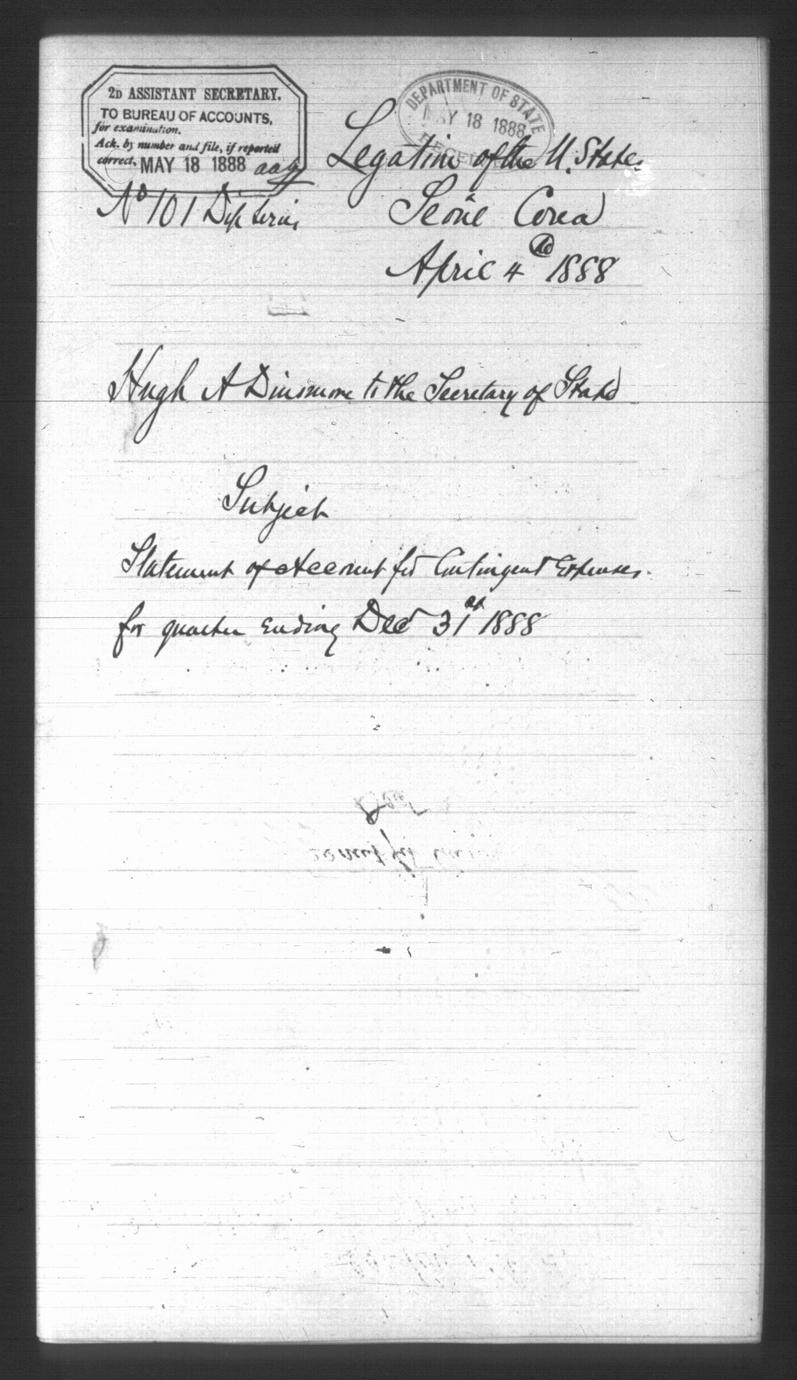 2D ASSISTANT SECRETARY.
TO BUREAU OF ACCOUNTS,
for examination.
Ack. by number and file, if reported
correct. MAY 18 1888 aaa
DEPARTMENT OF STATE
MAY 18 1888
RECEIVED
Legation of the U. States
Seoul Corea
April 4th 1888
No 101 Dip Series
Hugh A Dinsmore to the Secretary of State
Subject
Statement of Account for Contingent Expenses.
for quarter ending Dec 31st 1888